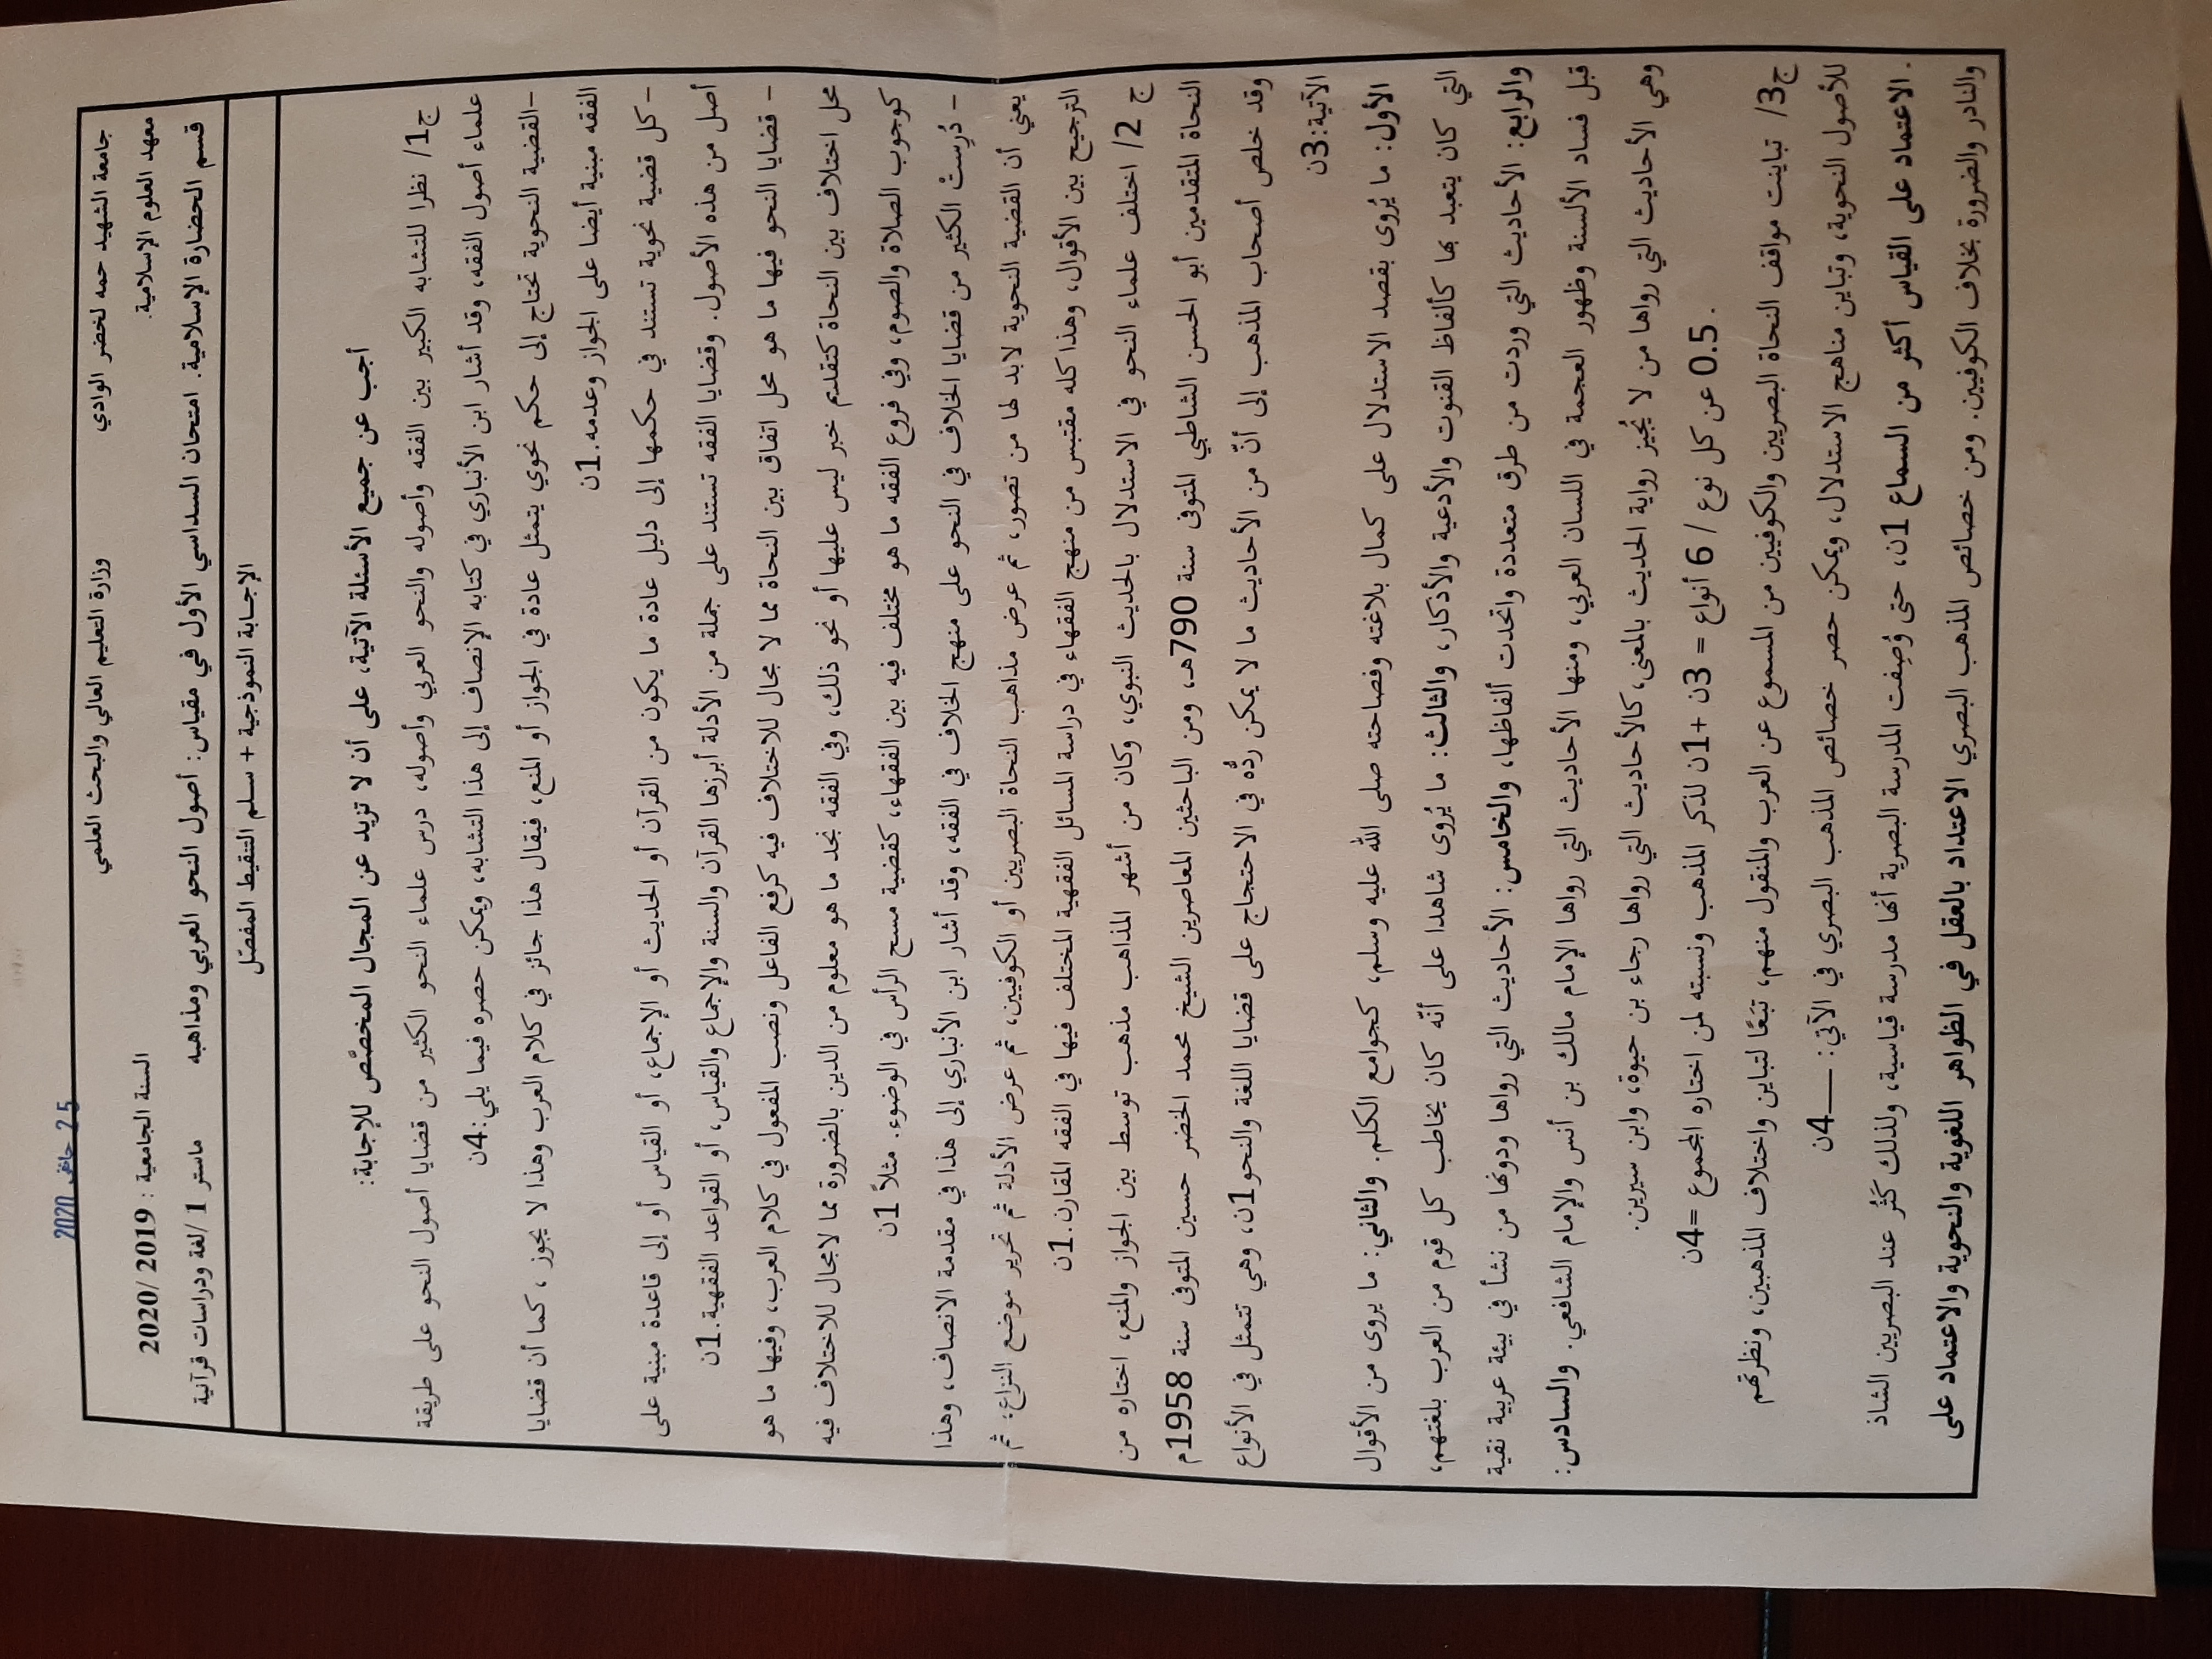 25 جانفي 2020
جامعة الشهيد حمه لخضر الوادي وزارة التعليم العالي والبحث العلمي
معهد العلوم الإسلامية. السنة الجامعية : 2019 /2020
قسم الحضارة الإسلامية. امتحان السداسي الأول في مقياس: أصول النحو العربي ومذاهبه ماستر 1 /لغة ودراسات قرآنية
الإجابة النموذجية + سلم التنقيط المفصّل
أجب عن جميع الأسئلة الآتية، على أن لا تزيد عن المجال المخصّص للإجابة:
ج1/ نظرا للتشابه الكبير بين الفقه وأصوله والنحو العربي وأصوله، درس علماء النحو الكثير من قضايا أصول النحو على طريقة
علماء أصول الفقه، وقد أشار ابن الأنباري في كتابه الإنصاف إلى هذا التشابه، ويمكن حصره فيما يلي:4ن
-القضية النحوية تحتاج إلى حكم نحوي يتمثل عادة في الجواز أو المنع، فيقال هذا جائز في كلام العرب وهذا لا يجوز ، كما أن قضايا
الفقه مبنية أيضا على الجواز وعدمه.1ن
- كل قضية نحوية تستند في حكمها إلى دليل عادة ما يكون من القرآن أو الحديث أو الإجماع، أو القياس أو إلى قاعدة مبنية على
أصل من هذه الأصول. وقضايا الفقه تستند على جملة من الأدلة أبرزها القرآن والسنة والإجماع والقياس، أو القواعد الفقهية.1ن
- قضايا النحو فيها ما هو محل اتفاق بين النحاة مما لا مجال للاختلاف فيه كرفع الفاعل ونصب المفعول في كلام العرب، وفيها ما هو
محل اختلاف بين النحاة كتقديم خبر ليس عليها أو نحو ذلك، وفي الفقه نجد ما هو معلوم من الدين بالضرورة مما لامجال للاختلاف فيه
كوجوب الصلاة والصوم، وفي فروع الفقه ما هو مختلف فيه بين الفقهاء، كقضية مسح الرأس في الوضوء. مثلاً 1ن
- دُرِستْ الكثير من قضايا الخلاف في النحو على منهج الخلاف في الفقه، وقد أشار ابن الأنباري إلى هذا في مقدمة الانصاف، وهذا
يعني أن القضية النحوية لابد لها من تصور، ثم عرض مذاهب النحاة البصريين أو الكوفيين، ثم عرض الأدلة ثم تحرير موضع النزاع؛ ثم
الترجيح بين الأقوال، وهذا كله مقتبس من منهج الفقهاء في دراسة المسائل الفقهية المختلف فيها في الفقه المقارن.1ن
ج 2/ اختلف علماء النحو في الاستدلال بالحديث النبوي، وكان من أشهر المذاهب مذهب توسط بين الجواز والمنع، اختاره من
النحاة المتقدمين أبو الحسن الشاطبي المتوفى سنة 790هـ، ومن الباحثين المعاصرين الشيخ محمد الخضر حسين المتوفى سنة 1958م
وقد خلص أصحاب المذهب إلى أنّ من الأحاديث ما لا يمكن ردُّه في الاحتجاج على قضايا اللغة والنحو1ن، وهي تتمثل في الأنواع
الآتية:3ن
الأول: ما يُروى بقصد الاستدلال على كمال بلاغته وفصاحته صلى الله عليه وسلم، كجوامع الكلم. والثاني: ما يروى من الأقوال
التي كان يتعبد بها كألفاظ القنوت والأدعية والأذكار، والثالث: ما يُروى شاهدا على أنّه كان يخاطب كل قوم من العرب بلغتهم،
والرابع: الأحاديث التي وردت من طرق متعددة واتحدت ألفاظها، والخامس: الأحاديث التي رواها ودوّنها من نشأ في بيئة عربية نقية
قبل فساد الألسنة وظهور العجمة في اللسان العربي، ومنها الأحاديث التي رواها الإمام مالك بن أنس والإمام الشافعي. والسادس:
وهي الأحاديث التي رواها من لا يُجيز رواية الحديث بالمعنى، كالأحاديث التي رواها رجاء بن حيوة، وابن سيرين.
0.5 عن كل نوع / 6 أنواع = 3ن +1ن لذكر المذهب ونسبته لمن اختاره المجموع =4ن
ج3/ تباينت مواقف النحاة البصريين والكوفيين من المسموع عن العرب والمنقول منهم، تبَعًا لتباين واختلاف المذهبين، ونظرتهم
للأصول النحوية، وتباين مناهج الاستدلال، ويمكن حصر خصائص المذهب البصري في الآتي: ــــ4ن
. الاعتماد على القياس أكثر من السماع 1ن، حتى وُصِفت المدرسة البصرية أنها مدرسة قياسية، ولذلك كَثُر عند البصريين الشاذ
والنادر والضرورة بخلاف الكوفيين. ومن خصائص المذهب البصري الاعتداد بالعقل في الظواهر اللغوية والنحوية والاعتماد على